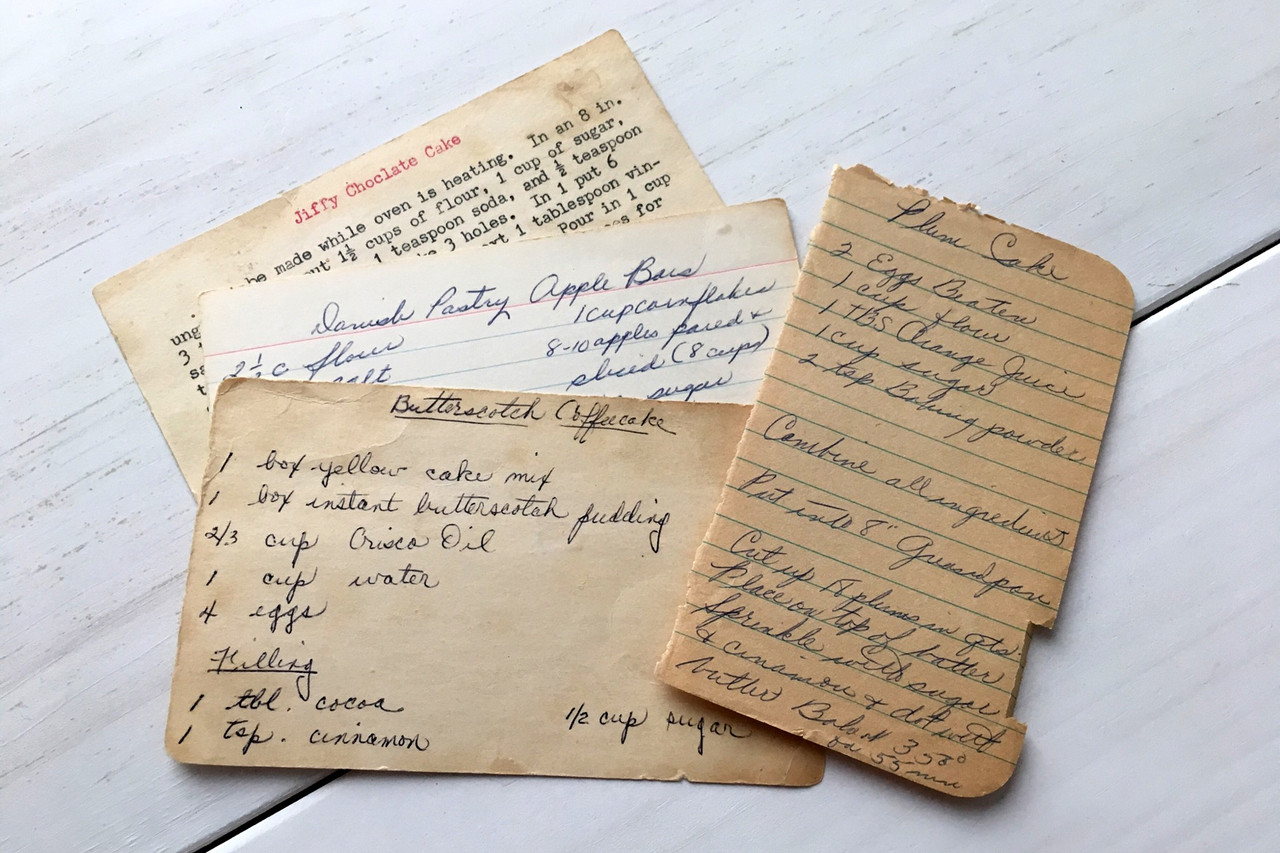 Jiffy Choclate Cake
be made while oven is heating. In an 8 in.
1½ cups of flour, 1 cup of sugar,
1 teaspoon soda, and ½ teaspoon
3 holes. In 1 put 6
1 tablespoon vin-
Pour in 1 cup
for
ung
3
sa
t
Danish Pastry Apple Bars
2½ c flour
salt
1 cup cornflakes
8-10 apples pared &
sliced (8 cups)
sugar
Butterscotch Coffeecake
1 box yellow cake mix
1 box instant butterscotch pudding
2/3 cup Crisco Oil
1 cup water
4 eggs
Filling
1 tbl. cocoa
1 tsp. cinnamon
1/2 cup sugar
Plum Cake
2 Eggs Beaten
1 cup flour
1 TBS Orange Juice
1 cup sugar
2 tsp Baking powder
Combine all ingredients
Put into 8"
Cut up plums in qts.
Place on top of batter
Sprinkle with sugar
& cinnamon & dot with
butter 350°
55 min